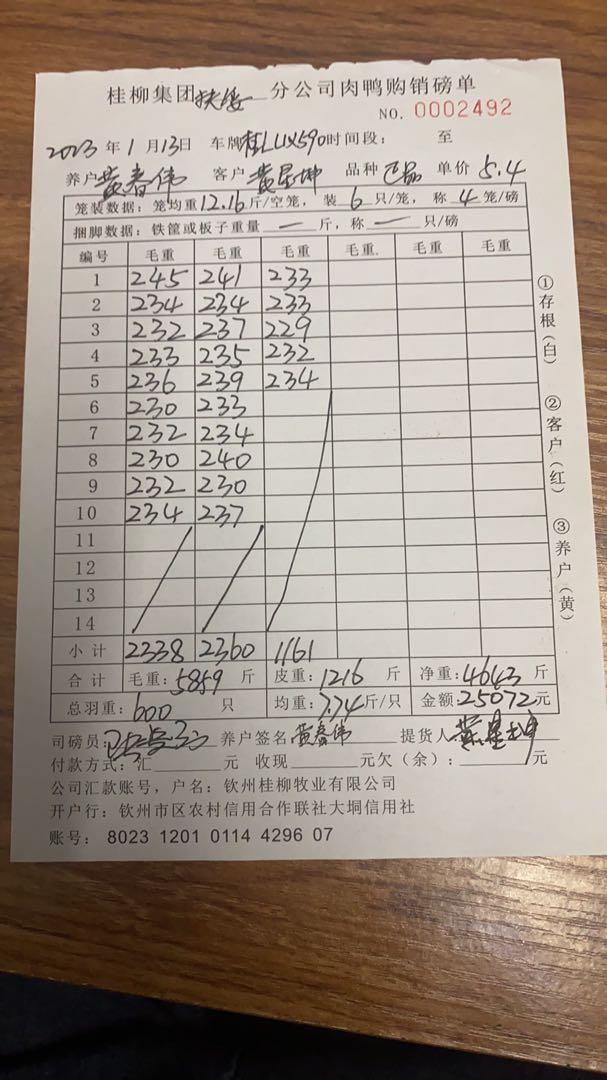 桂柳集团扶绥分公司肉鸭购销磅单
NO. 0002492
2023年1月13日 车牌桂LUX590时间段: 至
养户黄春伟 客户黄星坤 品种 单价5.4
笼装数据: 笼均重12.16斤/空笼, 装6只/笼, 称4笼/磅
捆脚数据: 铁筐或板子重量—斤, 称—只/磅
编号 毛重 毛重 毛重 毛重 毛重 毛重
1 245 241 233
2 234 234 233
3 232 237 229
4 233 235 232
5 236 239 234
6 230 233
7 232 234
8 230 240
9 232 230
10 234 237
11
12
13
14
小计 2338 2360 1161
合计 毛重: 5859斤 皮重: 1216斤 净重: 4643斤
总羽重: 600只 均重: 7.74斤/只 金额: 25072元
司磅员: 养户签名黄春伟 提货人黄星坤
付款方式: 汇 元 收现 元欠(余): 元
公司汇款账号, 户名: 钦州桂柳牧业有限公司
开户行: 钦州市区农村信用合作联社大垌信用社
账号: 8023 1201 0114 4296 07
①存根(白)
②客户(红)
③养户(黄)